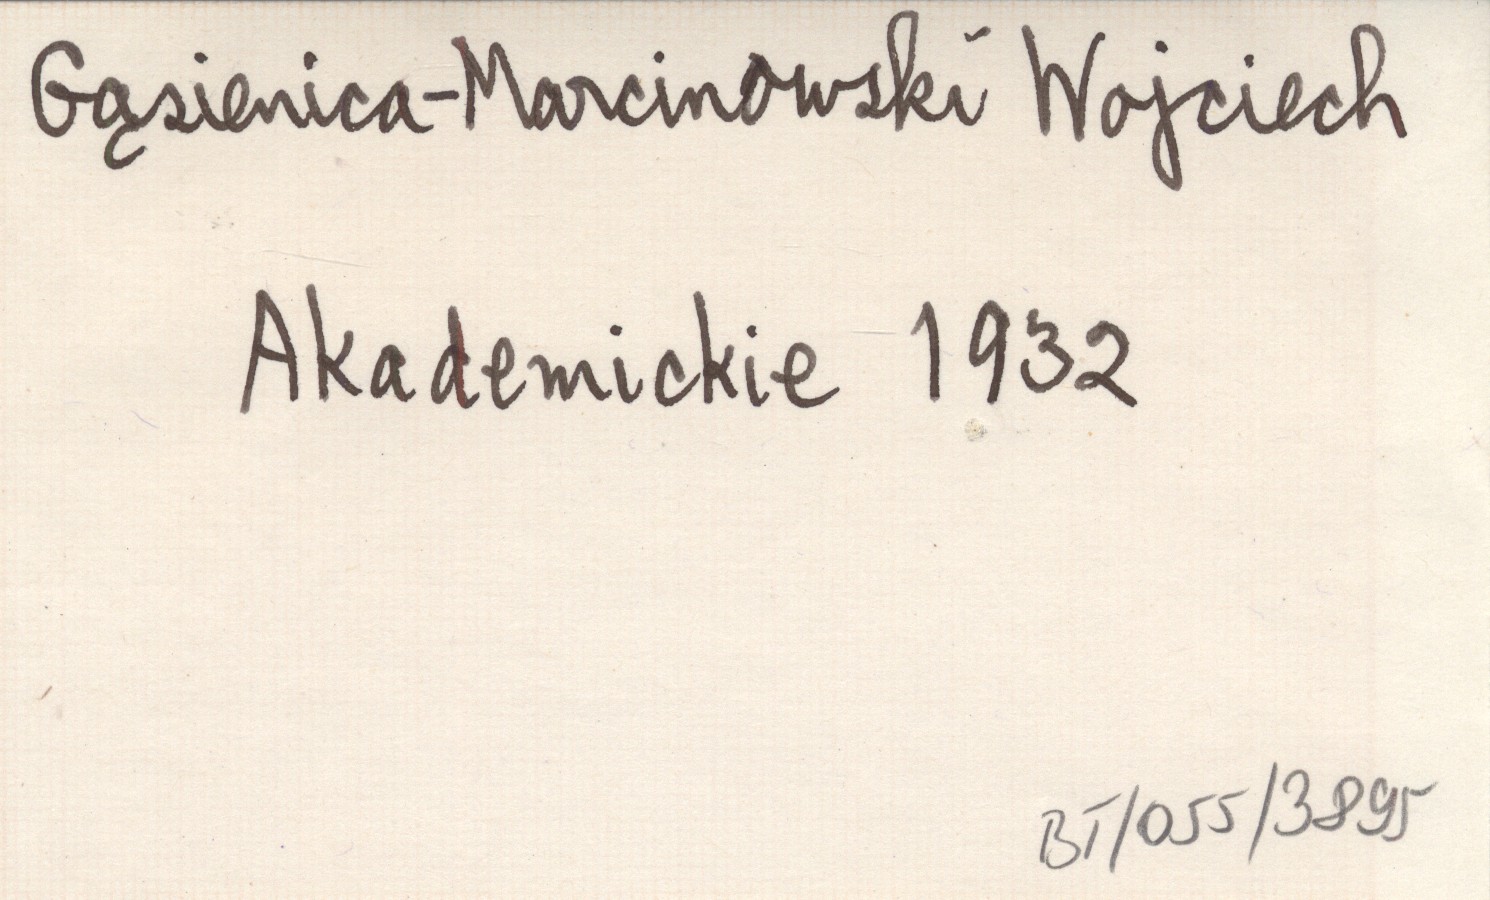 Gąsienica-Marcinowski Wojciech
Akademickie 1932
BT/055/3895